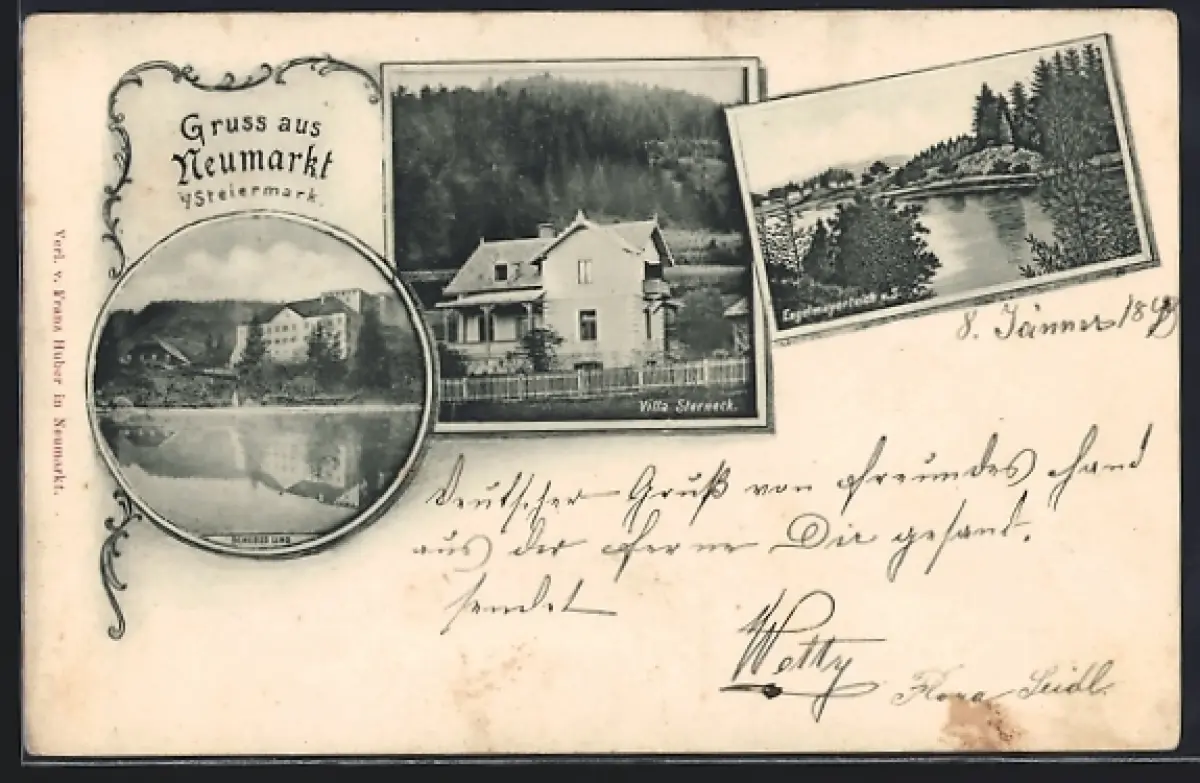 Gruss aus
Neumarkt
i/Steiermark.
SCHLOSS LIND
Villa Sterneck.
8. Jänner
Deutscher Gruß von Freundes Hand
aus der Ferne Dir gesant.
sendet
Flora Seidl.
Verl. v. Franz Huber in Neumarkt.